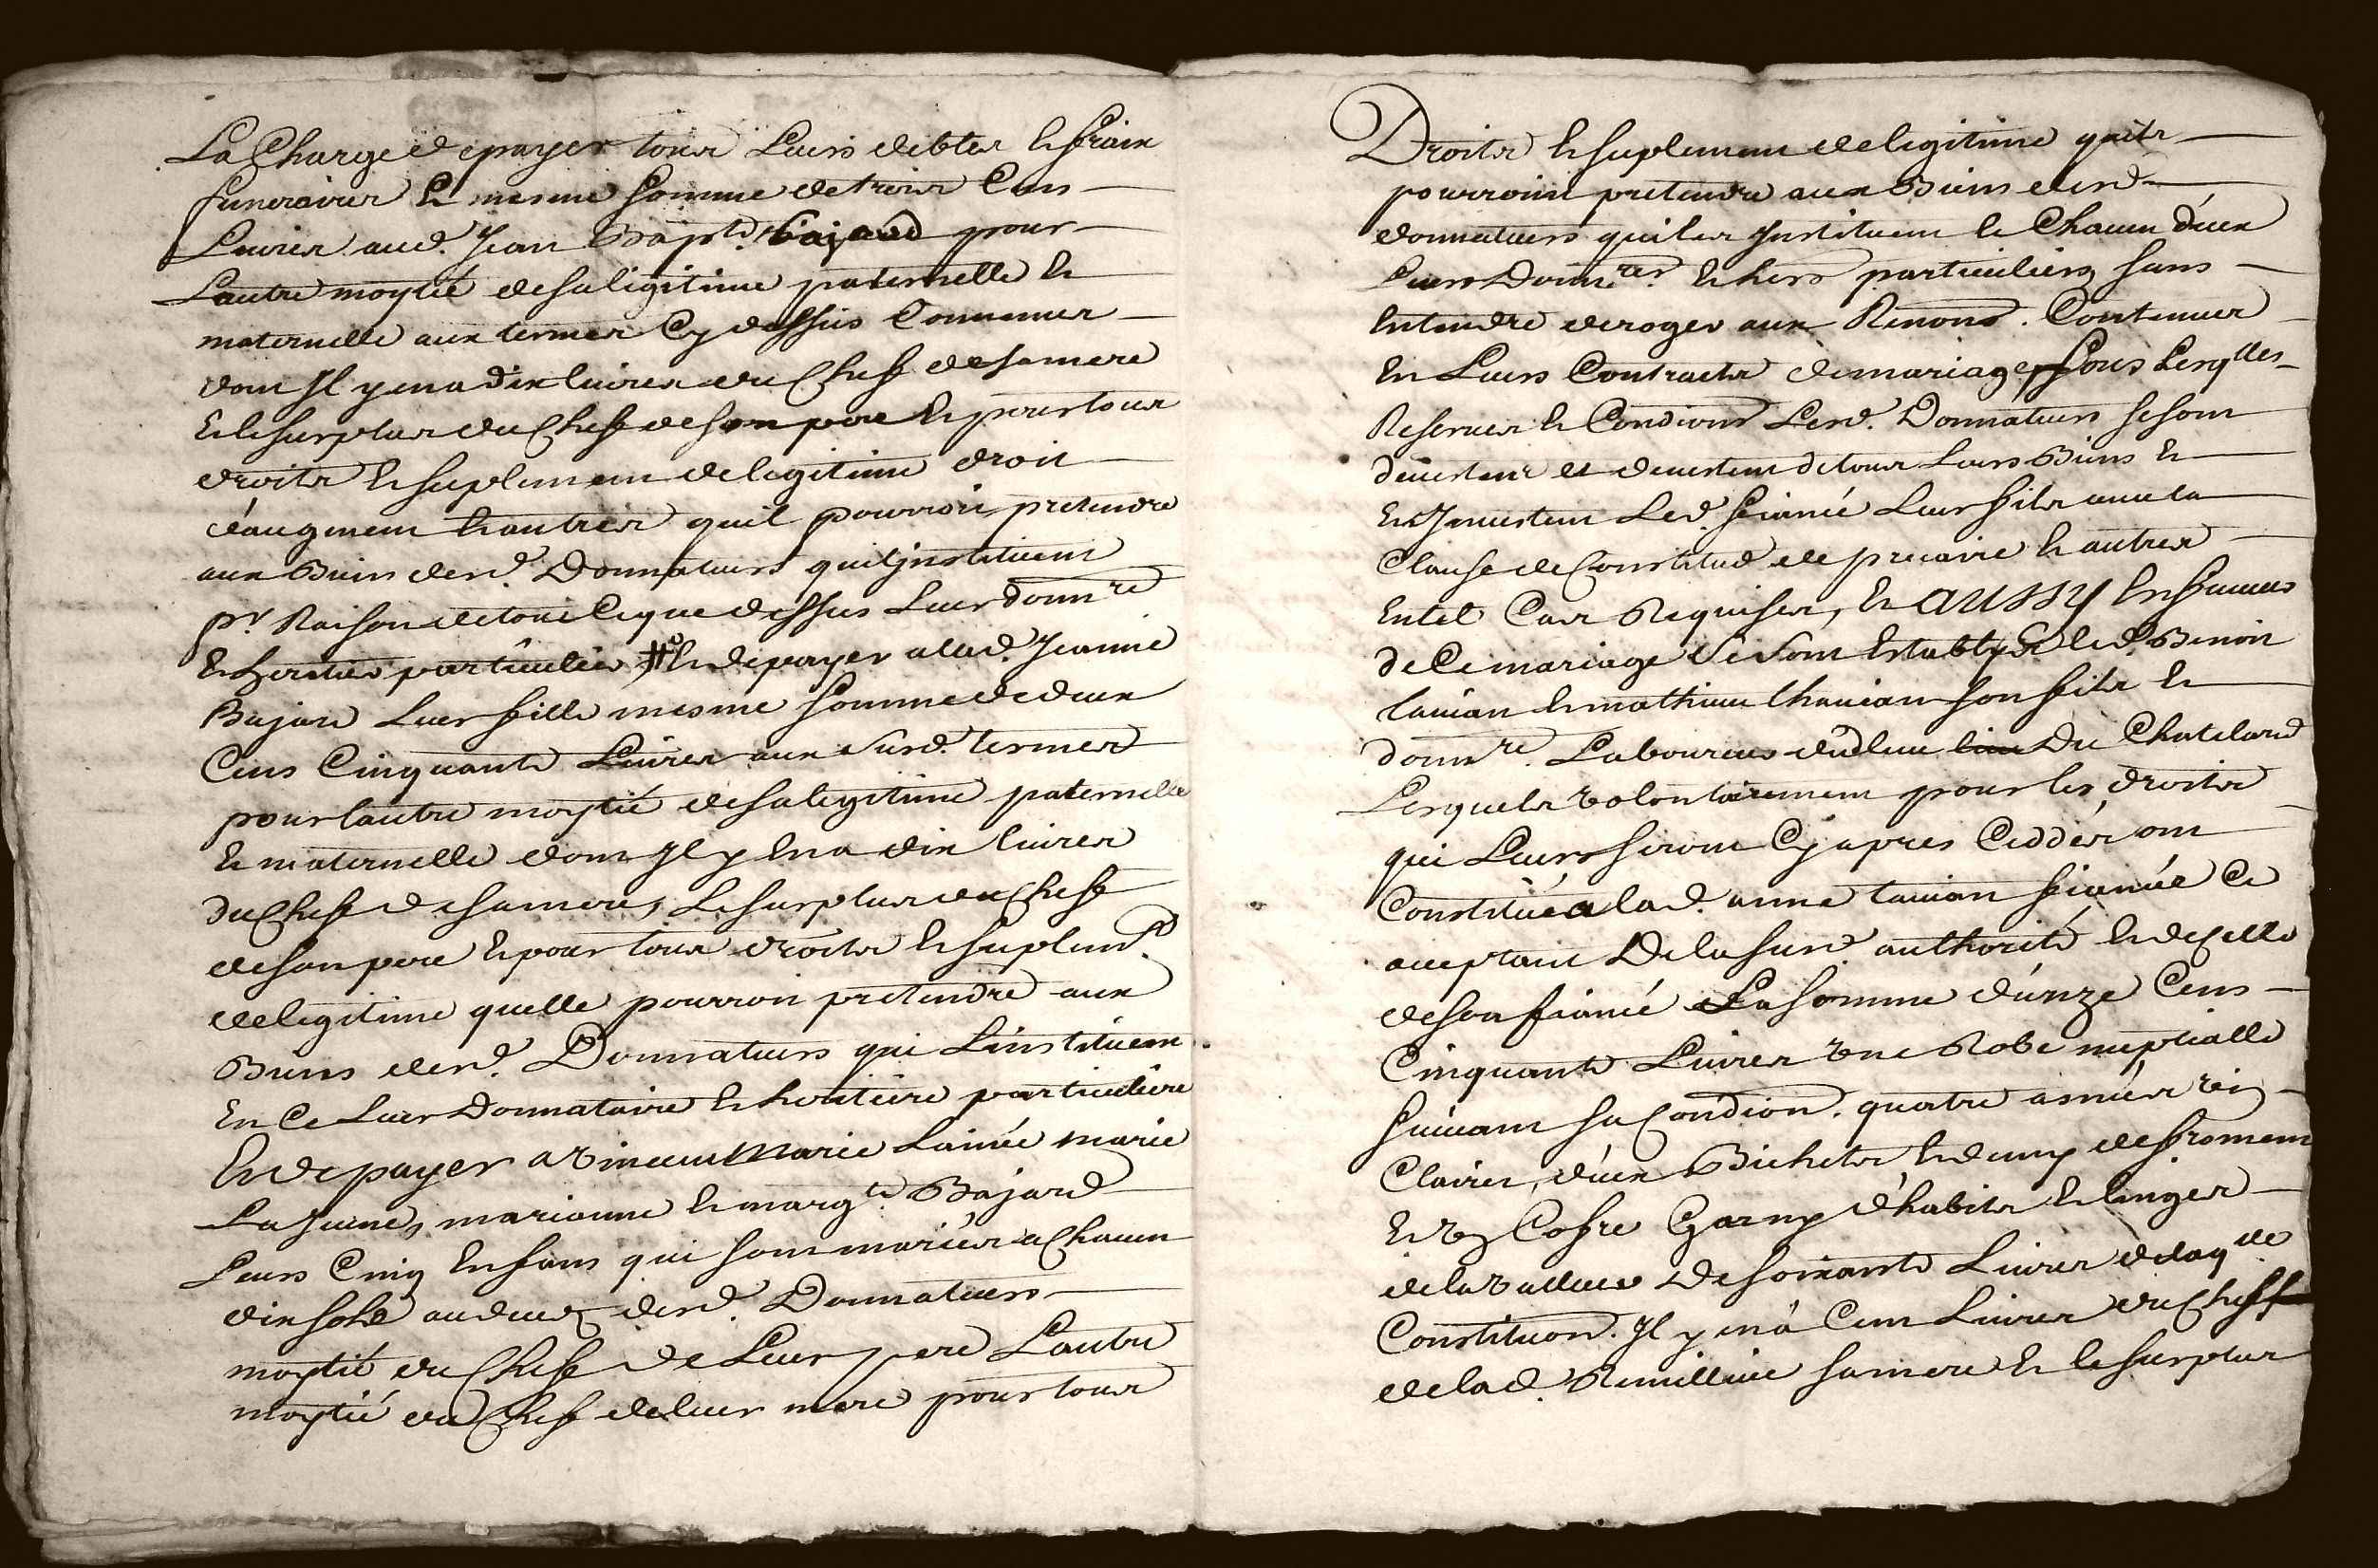 La Charge de payer tous Leurs debtes et fraix
funeraires Et mesme somme de trois Cens
Livres aud. Jean Bapt. Bajard pour
Lautre moytié de sa ligitime paternelle et
maternelle aux termes Cy dessus Convenues
dont Il y en a dix livres du Cheff de sa mere
Et le surplus du Cheff de son pere et pour tous
droits et suplement de legitime droit
d'augment et autres quil pourroit pretendre
aux Biens desd. Donnateurs quil jnstituent
pr Raison de tout Ce que dessus Leur donnre
Et heritier particulier # Et de payer a lad. Jeanne
Bajard Leur fille mesme somme de deux
Cens Cinquante Livres aux susd. termes
pour lautre moytié de sa legitime paternelle
Et maternelle dont Il y En a dix livres
du Cheff de sa mere, Le surplus du Cheff
de son pere Et pour tous droits Et suplemt
de legitime quelle pourroit pretendre aux
Biens desd. Donnateurs qui L'instituent
En Ce Leur Donnataire Et heritiere particuliere
Et de payer a Vincent Marie Lainée marie
La jeune, marianne Et margte Bajard
Leurs Cinq Enfans qui sont mariés a Chacun
dix sols au deces desd. Donnateurs
moytié du Cheff de Leur pere Lautre
moytié du Cheff de leur mere pour tous
Droits Et suplement de legitime quils
pourroint pretendre aux Biens desd.
donnateurs qui les Jnstituent Et Chacun d'eux
Leurs Donnres Et hers particuliers sans
Entendre deroger aux Renons. Contenues
En Leurs Contracts de mariage, sous Lesqlles
Reserves Et Condions Lesd. Donnateurs se sont
devestus et devestent de tous Leurs Biens Et
En Jnvestent Led. fiancé Leur fils avec la
Clause de Constitud de precaire Et autres
En tel Cas Requises, Et AUSSY En faveur
de Ce mariage Se sont Establys led. Benoit
tavian Et mathieu thavian son fils Et
donnre. Laboureurs dud lieu Du Chatelard
Lesquels Volontairement pour les droits
qui Leurs seront Cy apres Ceddés, ont
Constitué a lad. anne tavian fiancée Ce
acceptant De la susd. authorité Et de Celle
de son fiancé La somme d'unze Cens
Cinquante Livres Une Robe nuptialle
suivant sa Condion. quatre asnées Vin
Clairet, deux Bichets Et demy de froment
Et Un Cofre Garny d'habits Et linges
de la Valleur De soixante Livres de laqlle
Constituon. Il y en a Cent Livres du Cheff
de lad. Remilliue sa mere Et le surplus